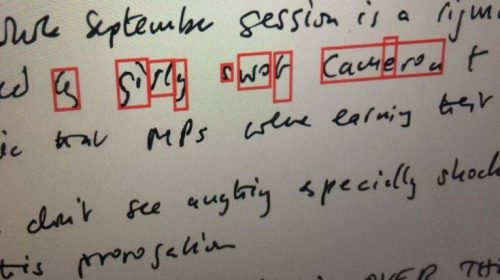 whole September session is a rigm
by girly swot Cameron t
ic that MPs were earning their
don't see anything especially shock
this prorogation
OVER TH